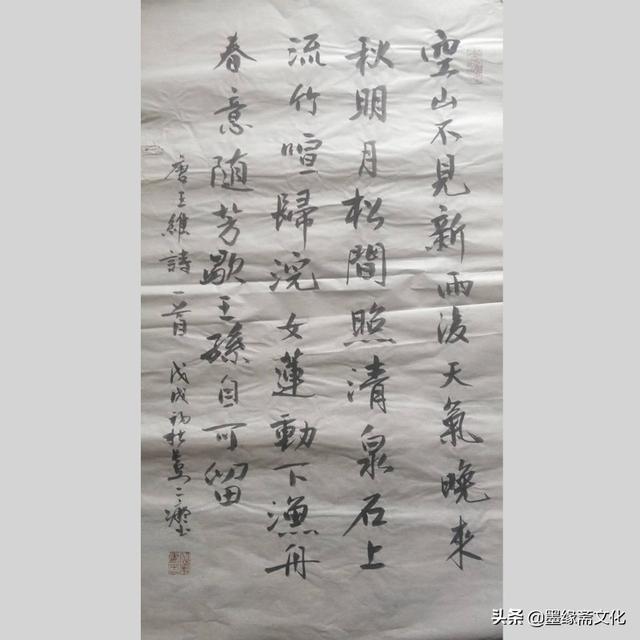 空山不見新雨後天氣晚来
秋明月松間照清泉石上
流竹喧歸浣女蓮動下漁舟
春意随芳歇王孫自可留
唐王維詩一首 戊戌初秋
头条 @墨缘斋文化